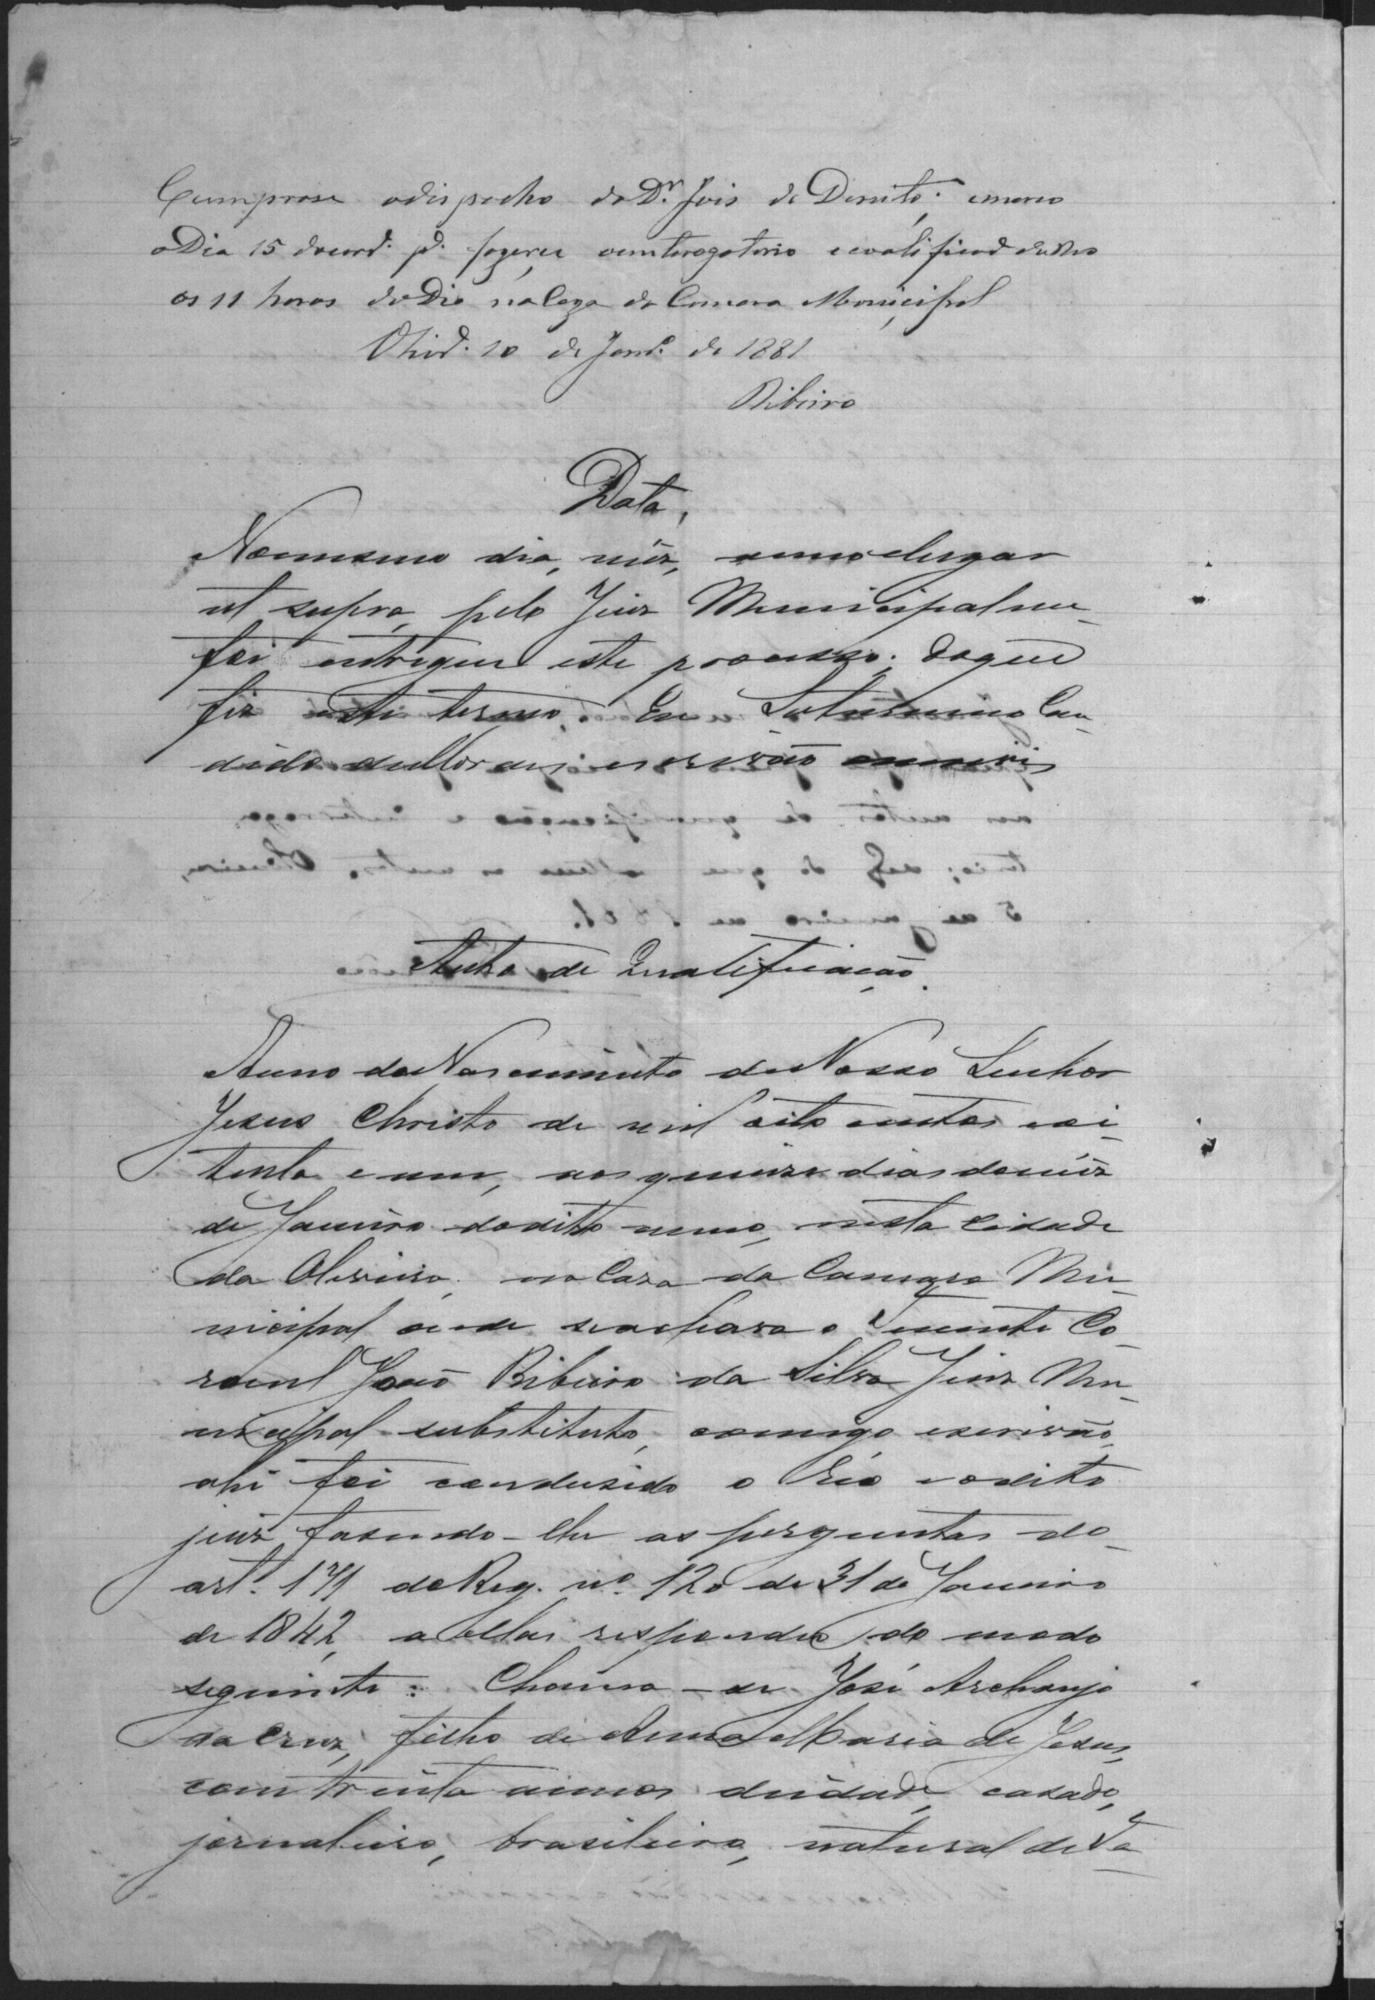 Cumprase odispacho do Dr. Juis de Direito; marco
o Dia 15 do corde. pa. fazerce o interogatorio e coalificad do Reo
as 11 horas do Dia na Caza da Camara Moniçipal
Olivra. 10 de Janro. de 1881
Ribeiro
Data,
No mesmo dia, mês, anno elugar
ut supra, pelo Juiz Municipal me
foi entregue este processo; doque
fiz este termo. Eu Saturnino Can-
dido de Moraes escrivão escrivi
Auto de Qualificação.
Anno do Nascimento de Nosso Senhor
Jesus Christo de mil oito centos e oi-
tenta e um, aos quinze dias do mês
de Janeiro do dito anno, nesta Cidade
da Oliveira, na Casa da Camara Mu-
nicipal onde se achava o Tenente Co-
ronel João Ribeiro da Silva Juiz Mu-
nicipal substituto, comigo escrivão,
ahi foi condusido o Réo e o dito
juiz fasendo-lhe as perguntas do
artº. 171 do Reg. nº. 120 de 31 de Janeiro
de 1842, a ellas respondeu do modo
seguinte: Chama-se José Archanjo
da Cruz, filho de Anna Maria de Jesus,
com trinta annos deidade, casado,
jornaleiro, brasileiro, natural de Ta-